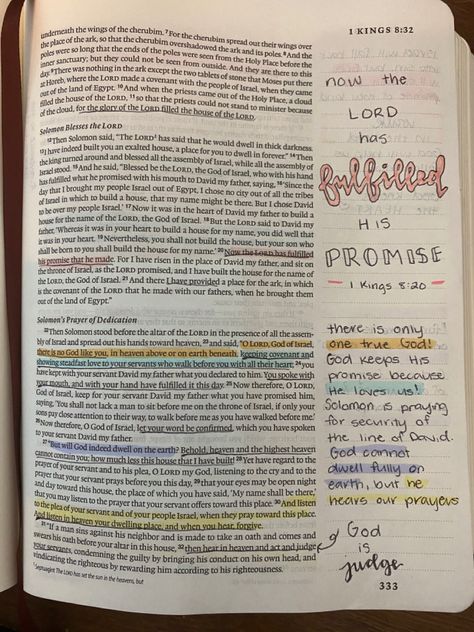 1 KINGS 8:32
underneath the wings of the cherubim. 7 For the cherubim spread out their wings over
the place of the ark, so that the cherubim overshadowed the ark and its poles. 8 And the
poles were so long that the ends of the poles were seen from the Holy Place before the
inner sanctuary; but they could not be seen from outside. And they are there to this
day. 9 There was nothing in the ark except the two tablets of stone that Moses put there
at Horeb, where the LORD made a covenant with the people of Israel, when they came
out of the land of Egypt. 10 And when the priests came out of the Holy Place, a cloud
filled the house of the LORD, 11 so that the priests could not stand to minister because
of the cloud, for the glory of the LORD filled the house of the LORD.
Solomon Blesses the LORD
12 Then Solomon said, "The LORD has said that he would dwell in thick darkness.
13 I have indeed built you an exalted house, a place for you to dwell in forever." 14 Then
the king turned around and blessed all the assembly of Israel, while all the assembly of
Israel stood. 15 And he said, "Blessed be the LORD, the God of Israel, who with his hand
has fulfilled what he promised with his mouth to David my father, saying, 16 'Since the
day that I brought my people Israel out of Egypt, I chose no city out of all the tribes
of Israel in which to build a house, that my name might be there. But I chose David
to be over my people Israel.' 17 Now it was in the heart of David my father to build a
house for the name of the LORD, the God of Israel. 18 But the LORD said to David my
father, 'Whereas it was in your heart to build a house for my name, you did well that
it was in your heart. 19 Nevertheless, you shall not build the house, but your son who
shall be born to you shall build the house for my name.' 20 Now the LORD has fulfilled
his promise that he made. For I have risen in the place of David my father, and sit on
the throne of Israel, as the LORD promised, and I have built the house for the name of
the LORD, the God of Israel. 21 And there I have provided a place for the ark, in which
is the covenant of the LORD that he made with our fathers, when he brought them
out of the land of Egypt."
Solomon's Prayer of Dedication
22 Then Solomon stood before the altar of the LORD in the presence of all the assem-
bly of Israel and spread out his hands toward heaven, 23 and said, "O LORD, God of Israel,
there is no God like you, in heaven above or on earth beneath, keeping covenant and
showing steadfast love to your servants who walk before you with all their heart; 24 you
have kept with your servant David my father what you declared to him. You spoke with
your mouth, and with your hand have fulfilled it this day. 25 Now therefore, O LORD,
God of Israel, keep for your servant David my father what you have promised him,
saying, 'You shall not lack a man to sit before me on the throne of Israel, if only your
sons pay close attention to their way, to walk before me as you have walked before me.'
26 Now therefore, O God of Israel, let your word be confirmed, which you have spoken
to your servant David my father.
27 "But will God indeed dwell on the earth? Behold, heaven and the highest heaven
cannot contain you; how much less this house that I have built! 28 Yet have regard to the
prayer of your servant and to his plea, O LORD my God, listening to the cry and to the
prayer that your servant prays before you this day, 29 that your eyes may be open night
and day toward this house, the place of which you have said, 'My name shall be there,'
that you may listen to the prayer that your servant offers toward this place. 30 And listen
to the plea of your servant and of your people Israel, when they pray toward this place.
And listen in heaven your dwelling place, and when you hear, forgive.
31 "If a man sins against his neighbor and is made to take an oath and comes and
swears his oath before your altar in this house, 32 then hear in heaven and act and judge
your servants, condemning the guilty by bringing his conduct on his own head, and
vindicating the righteous by rewarding him according to his righteousness.
Septuagint The LORD has set the sun in the heavens, but
now the
LORD
has
fulfilled
HIS
PROMISE
1 Kings 8:20
there is only
one true God!
God keeps His
promise because
He loves us!
Solomon is praying
for security of
the line of David.
God cannot
dwell fully on
earth, but he
hears our prayers
God
is
judge
333